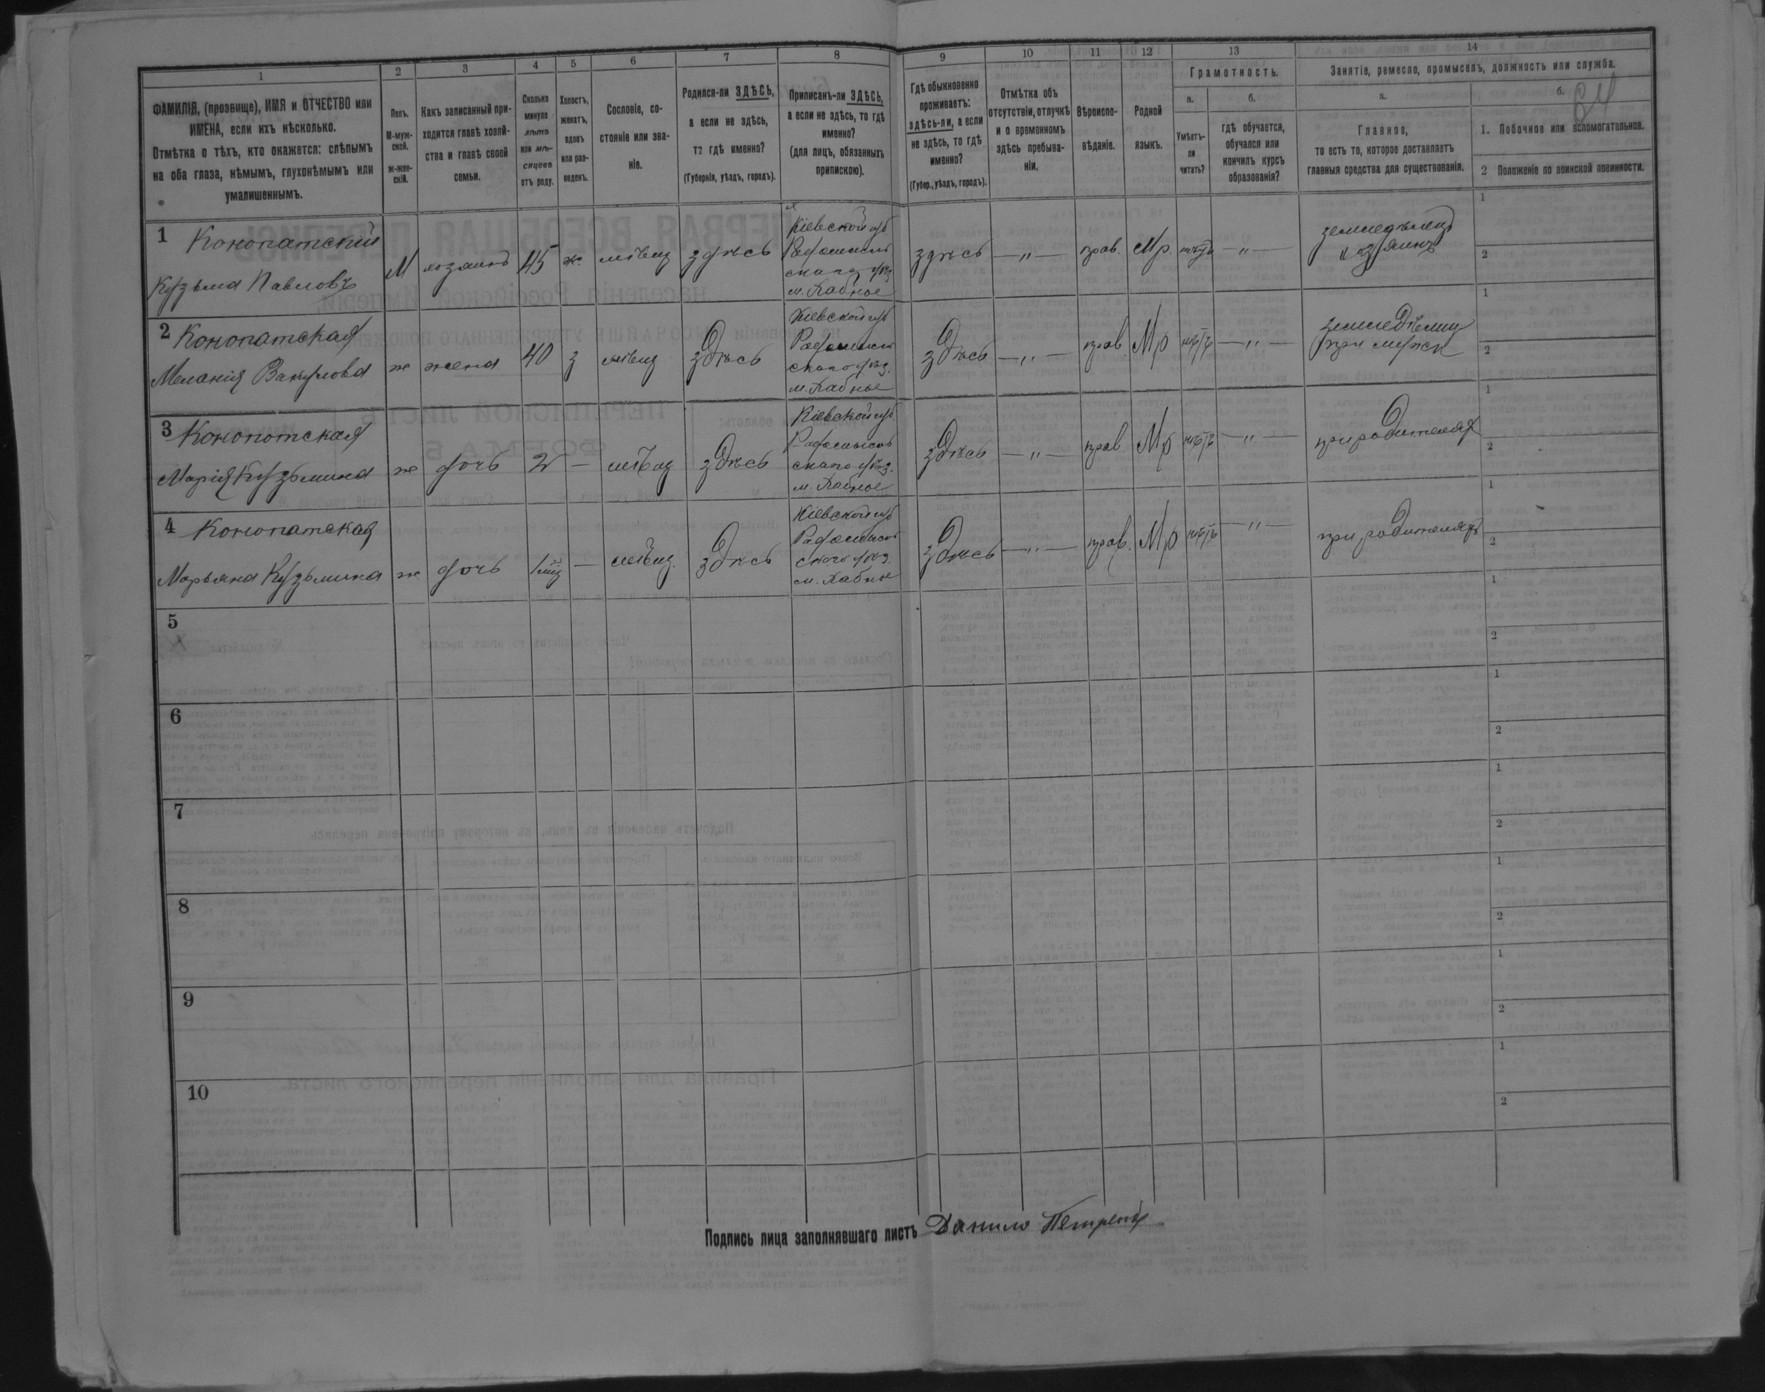 1 2 3 4 5 6 7 8 9 10 11 12 13 14
ФАМИЛІЯ, (прозвище), ИМЯ и ОТЧЕСТВО или
ИМЕНА, если ихъ нѣсколько.
Отмѣтка о тѣхъ, кто окажется: слѣпымъ
на оба глаза, нѣмымъ, глухонѣмымъ или
умалишеннымъ.
Полъ.
М-муж-
ской.
ж-жен-
скій.
Какъ записанный при-
ходится главѣ хозяй-
ства и главѣ своей
семьи.
Сколько
минуло
лѣтъ
или мѣ-
сяцевъ
отъ роду.
Холостъ,
женатъ,
вдовъ
или раз-
веденъ.
Сословіе, со-
стояніе или зва-
ніе.
Родился-ли ЗДѢСЬ,
а если не здѣсь,
то гдѣ именно?
(Губернія, уѣздъ, городъ).
Приписанъ-ли ЗДѢСЬ,
а если не здѣсь, то гдѣ
именно?
(для лицъ, обязанныхъ
припискою).
Гдѣ обыкновенно
проживаетъ:
здѣсь-ли, а если
не здѣсь, то гдѣ
именно?
(Губер., уѣздъ, городъ).
Отмѣтка объ
отсутствіи, отлучкѣ
и о временномъ
здѣсь пребыва-
ніи.
Вѣроиспо-
вѣданіе.
Родной
языкъ.
Грамотность.
а.
Умѣетъ-
ли
читать?
б.
гдѣ обучается,
обучался или
кончилъ курсъ
образованія?
Занятіе, ремесло, промыселъ, должность или служба.
а.
Главное,
то есть то, которое доставляетъ
главныя средства для существованія.
б.
64
1. Побочное или вспомогательное.
2 Положеніе по воинской повинности.
1 Конопатскій
Кузьма Павловъ
М хозяинъ 45 ж. мѣщ здѣсь
Кіевской губ
Радомысль
скаго уѣз
м. Хабное
здѣсь — „ — прав. Мр. нѣтъ — „ —
земледѣлецъ
хозяинъ
1
2
2 Конопатская
Меланія Вакулова
ж жена 40 з мѣщ здѣсь
Кіевской губ
Радомысль
скаго уѣз.
м. Хабное
здѣсь — „ — прав Мр нѣтъ — „ —
земледѣлица
при мужѣ
1
2
3 Конопотская
Марія Кузьмина
ж дочь 2 — мѣщ здѣсь
Кіевской губ
Радомысль
скаго уѣз.
м. Хабное
здѣсь — „ — прав Мр нѣтъ — „ —
при родителяхъ
1
2
4 Конопатская
Марьяна Кузьмина
ж дочь 1 мѣщ. здѣсь
Кіевской губ
Радомысль
скаго уѣз
м. Хабное
здѣсь — „ — прав. Мр нѣтъ — „ —
при родителяхъ
1
2
5
1
2
6
1
2
7
1
2
8
1
2
9
1
2
10
1
2
Подпись лица заполнявшаго листъ Данило